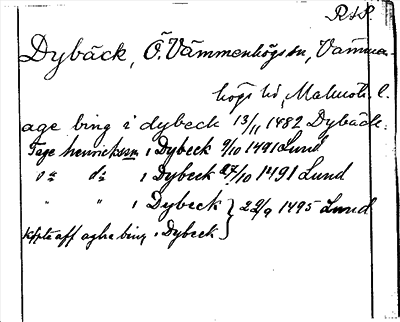 RAP.
Dybäck, Ö. Vämmenhögs sn, Vämmen-
högs hd, Malmöh. l.
age bing i dybeck 13/11 1482 Dybäck.
Tage henrickssn i Dybeck 9/10 1491 Lund
do do i Dybeck 27/10 1491 Lund
" " i Dybeck } 22/9 1495 Lund
kfpte aff aghe bing i Dybeck